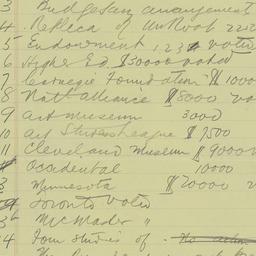 3 Budgetary arrangement
4 Replica of
5 Endowment 123 voted
6 Higher Ed. $50000 voted
7 Carnegie Foundation $1000
8 Nat'l alliance $8000 vo
9 Art museum 3000
10 Art Students League $7500
11 Cleveland museum $9000
Occidental 10000
3 Minnesota $20000 v
Toronto Voted
3b McMaster "
4 Four studies of